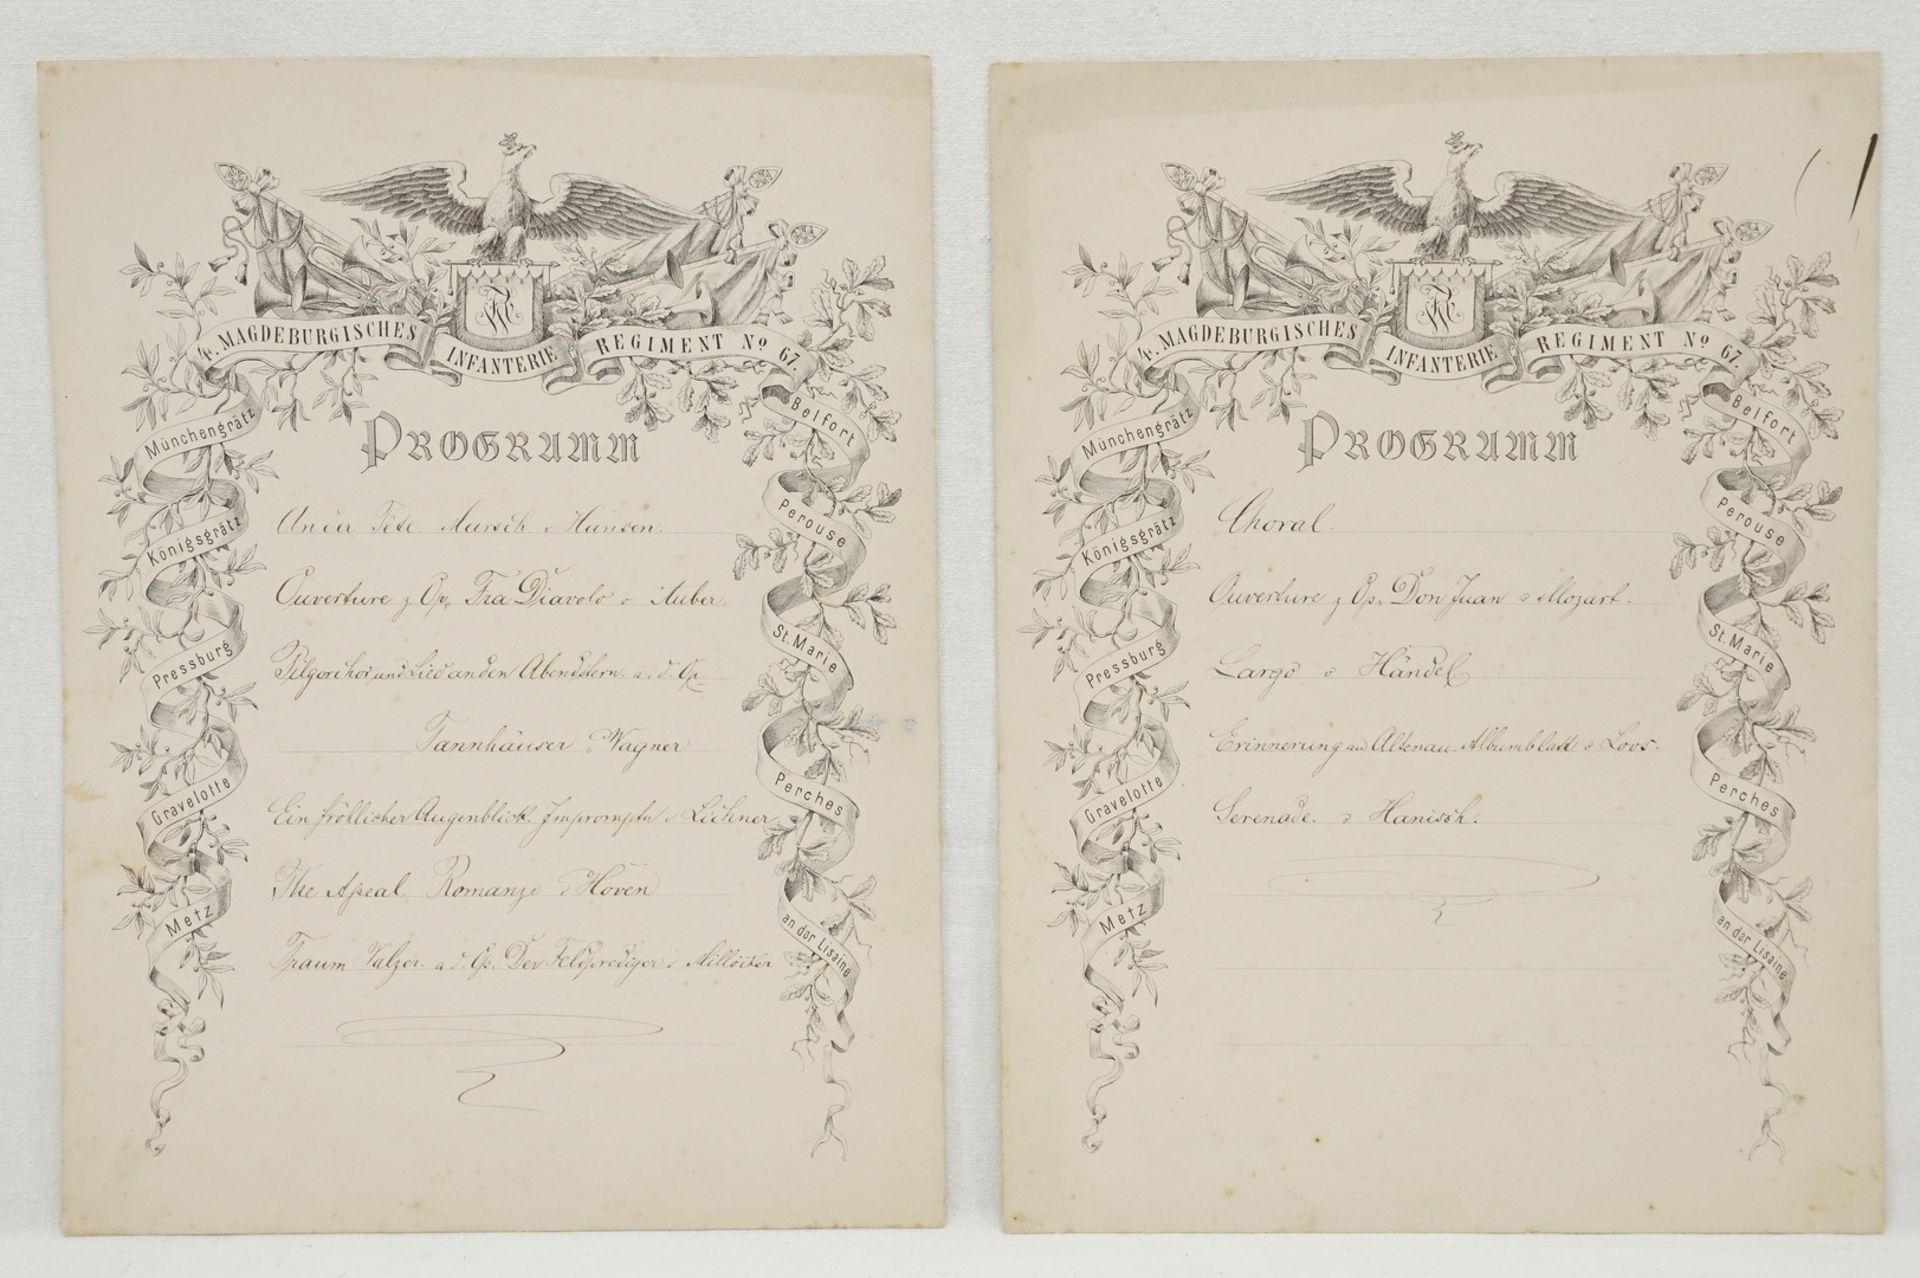 4. MAGDEBURGISCHES INFANTERIE REGIMENT No 67.
PROGRAMM
Münchengrätz
Königsgrätz
Pressburg
Gravelotte
Metz
Belfort
Perouse
St. Marie
Perches
an der Lisaine
An der Tête. Marsch v Hansen.
Ouverture z Op. Fra Diavolo v Auber.
Pilgerchor und Lied an den Abendstern. a. d. Op.
Tannhäuser v Wagner
Ein fröhlicher Augenblick. Impromptu v
The Apeal. Romanze v Hoven
Traum Walzer. a d. Op. Der Feldprediger v Millöcker
4. MAGDEBURGISCHES INFANTERIE REGIMENT No 67.
PROGRAMM
Münchengrätz
Königsgrätz
Pressburg
Gravelotte
Metz
Belfort
Perouse
St. Marie
Perches
an der Lisaine
Choral.
Ouverture z Op. Don Juan v Mozart.
Largo v Händel
Erinnerung an Altenau Albumblatt v Loos.
Serenade. v Hanisch.